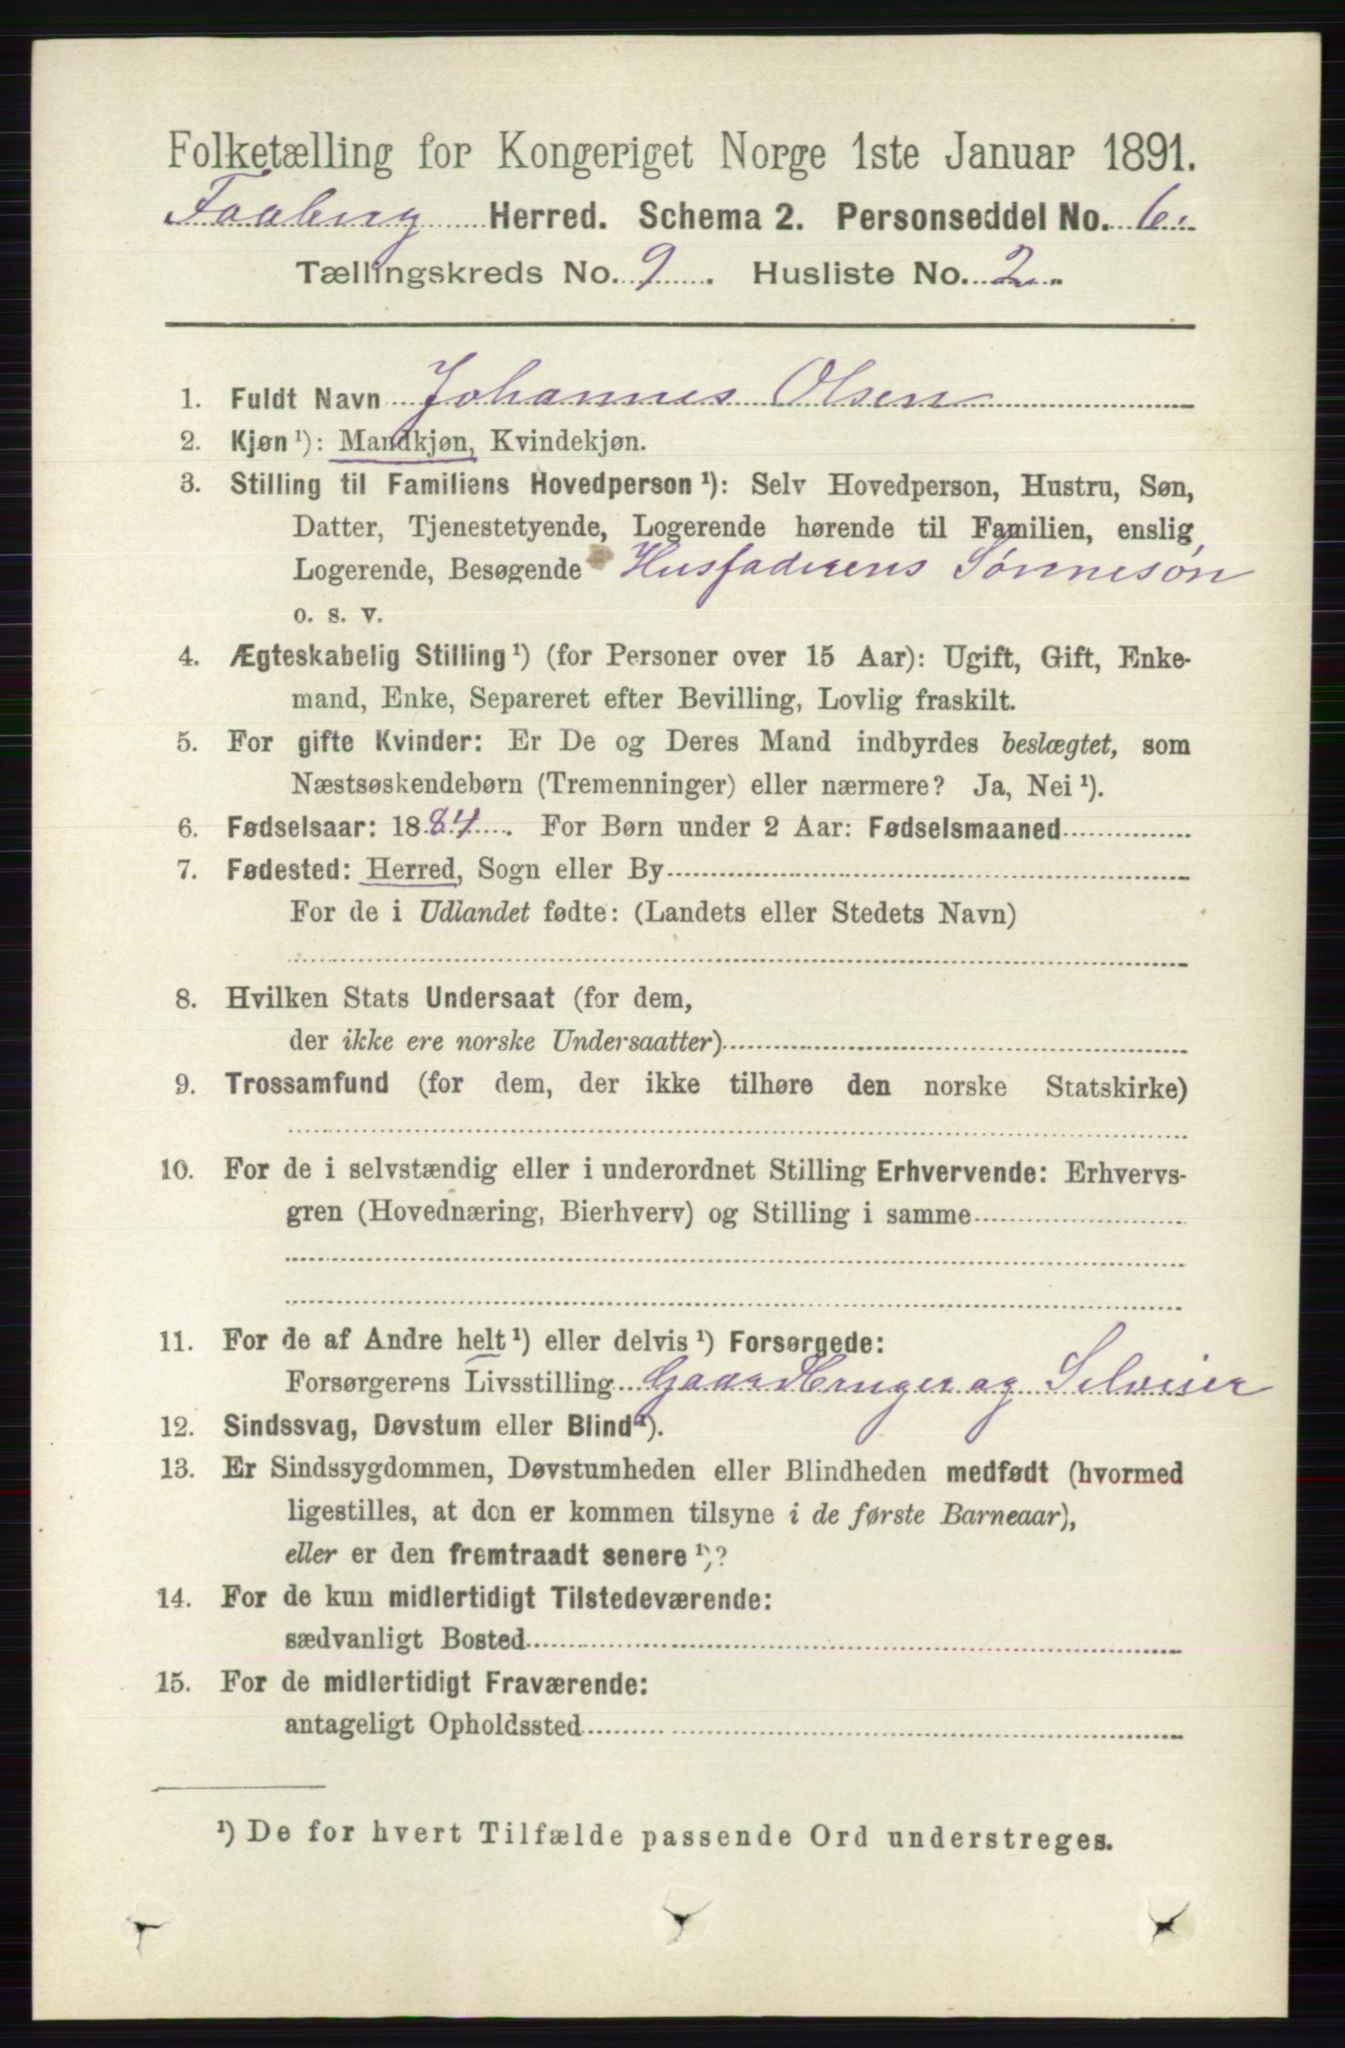 Folketælling for Kongeriget Norge 1ste Januar 1891.
Faaberg Herred. Schema 2. Personseddel No. 6.
Tællingskreds No. 9. Husliste No. 2.
1. Fuldt Navn Johannes Olsen
2. Kjøn ¹): Mandkjøn, Kvindekjøn.
3. Stilling til Familiens Hovedperson ¹): Selv Hovedperson, Hustru, Søn,
Datter, Tjenestetyende, Logerende hørende til Familien, enslig
Logerende, Besøgende Husfaderens Sønnesøn
o. s. v.
4. Ægteskabelig Stilling ¹) (for Personer over 15 Aar): Ugift, Gift, Enke-
mand, Enke, Separeret efter Bevilling, Lovlig fraskilt.
5. For gifte Kvinder: Er De og Deres Mand indbyrdes beslægtet, som
Næstsøskendebørn (Tremenninger) eller nærmere? Ja, Nei ¹).
6. Fødselsaar: 1884. For Børn under 2 Aar: Fødselsmaaned
7. Fødested: Herred, Sogn eller By
For de i Udlandet fødte: (Landets eller Stedets Navn)
8. Hvilken Stats Undersaat (for dem,
der ikke ere norske Undersaatter)
9. Trossamfund (for dem, der ikke tilhøre den norske Statskirke)
10. For de i selvstændig eller i underordnet Stilling Erhvervende: Erhvervs-
gren (Hovednæring, Bierhverv) og Stilling i samme
11. For de af Andre helt ¹) eller delvis ¹) Forsørgede:
Forsørgerens Livsstilling Gaardbruger og Selveier
12. Sindssvag, Døvstum eller Blind ¹).
13. Er Sindssygdommen, Døvstumheden eller Blindheden medfødt (hvormed
ligestilles, at den er kommen tilsyne i de første Barneaar),
eller er den fremtraadt senere ¹)?
14. For de kun midlertidigt Tilstedeværende:
sædvanligt Bosted
15. For de midlertidigt Fraværende:
antageligt Opholdssted
¹) De for hvert Tilfælde passende Ord understreges.